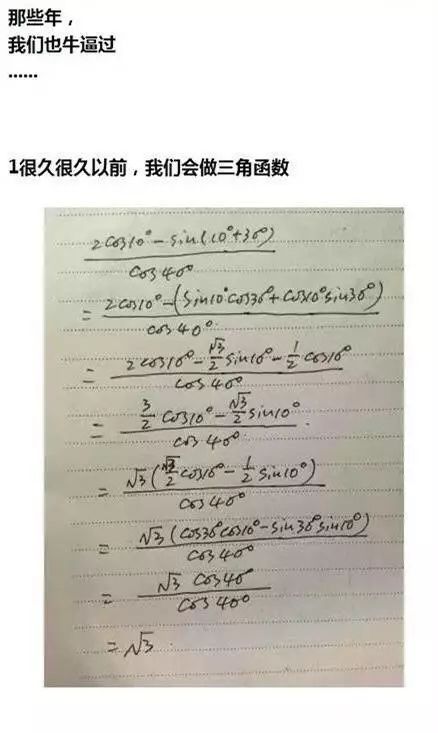 那些年，
我们也牛逼过
……
1很久很久以前，我们会做三角函数
2cos10° - sin(10°+30°)
cos40°
= 2cos10° - (sin10°cos30° + cos10°sin30°)
cos40°
= 2cos10° - √3/2 sin10° - 1/2 cos10°
cos40°
= 3/2 cos10° - √3/2 sin10°
cos40°
= √3(√3/2 cos10° - 1/2 sin10°)
cos40°
= √3(cos30°cos10° - sin30°sin10°)
cos40°
= √3 cos40°
cos40°
= √3